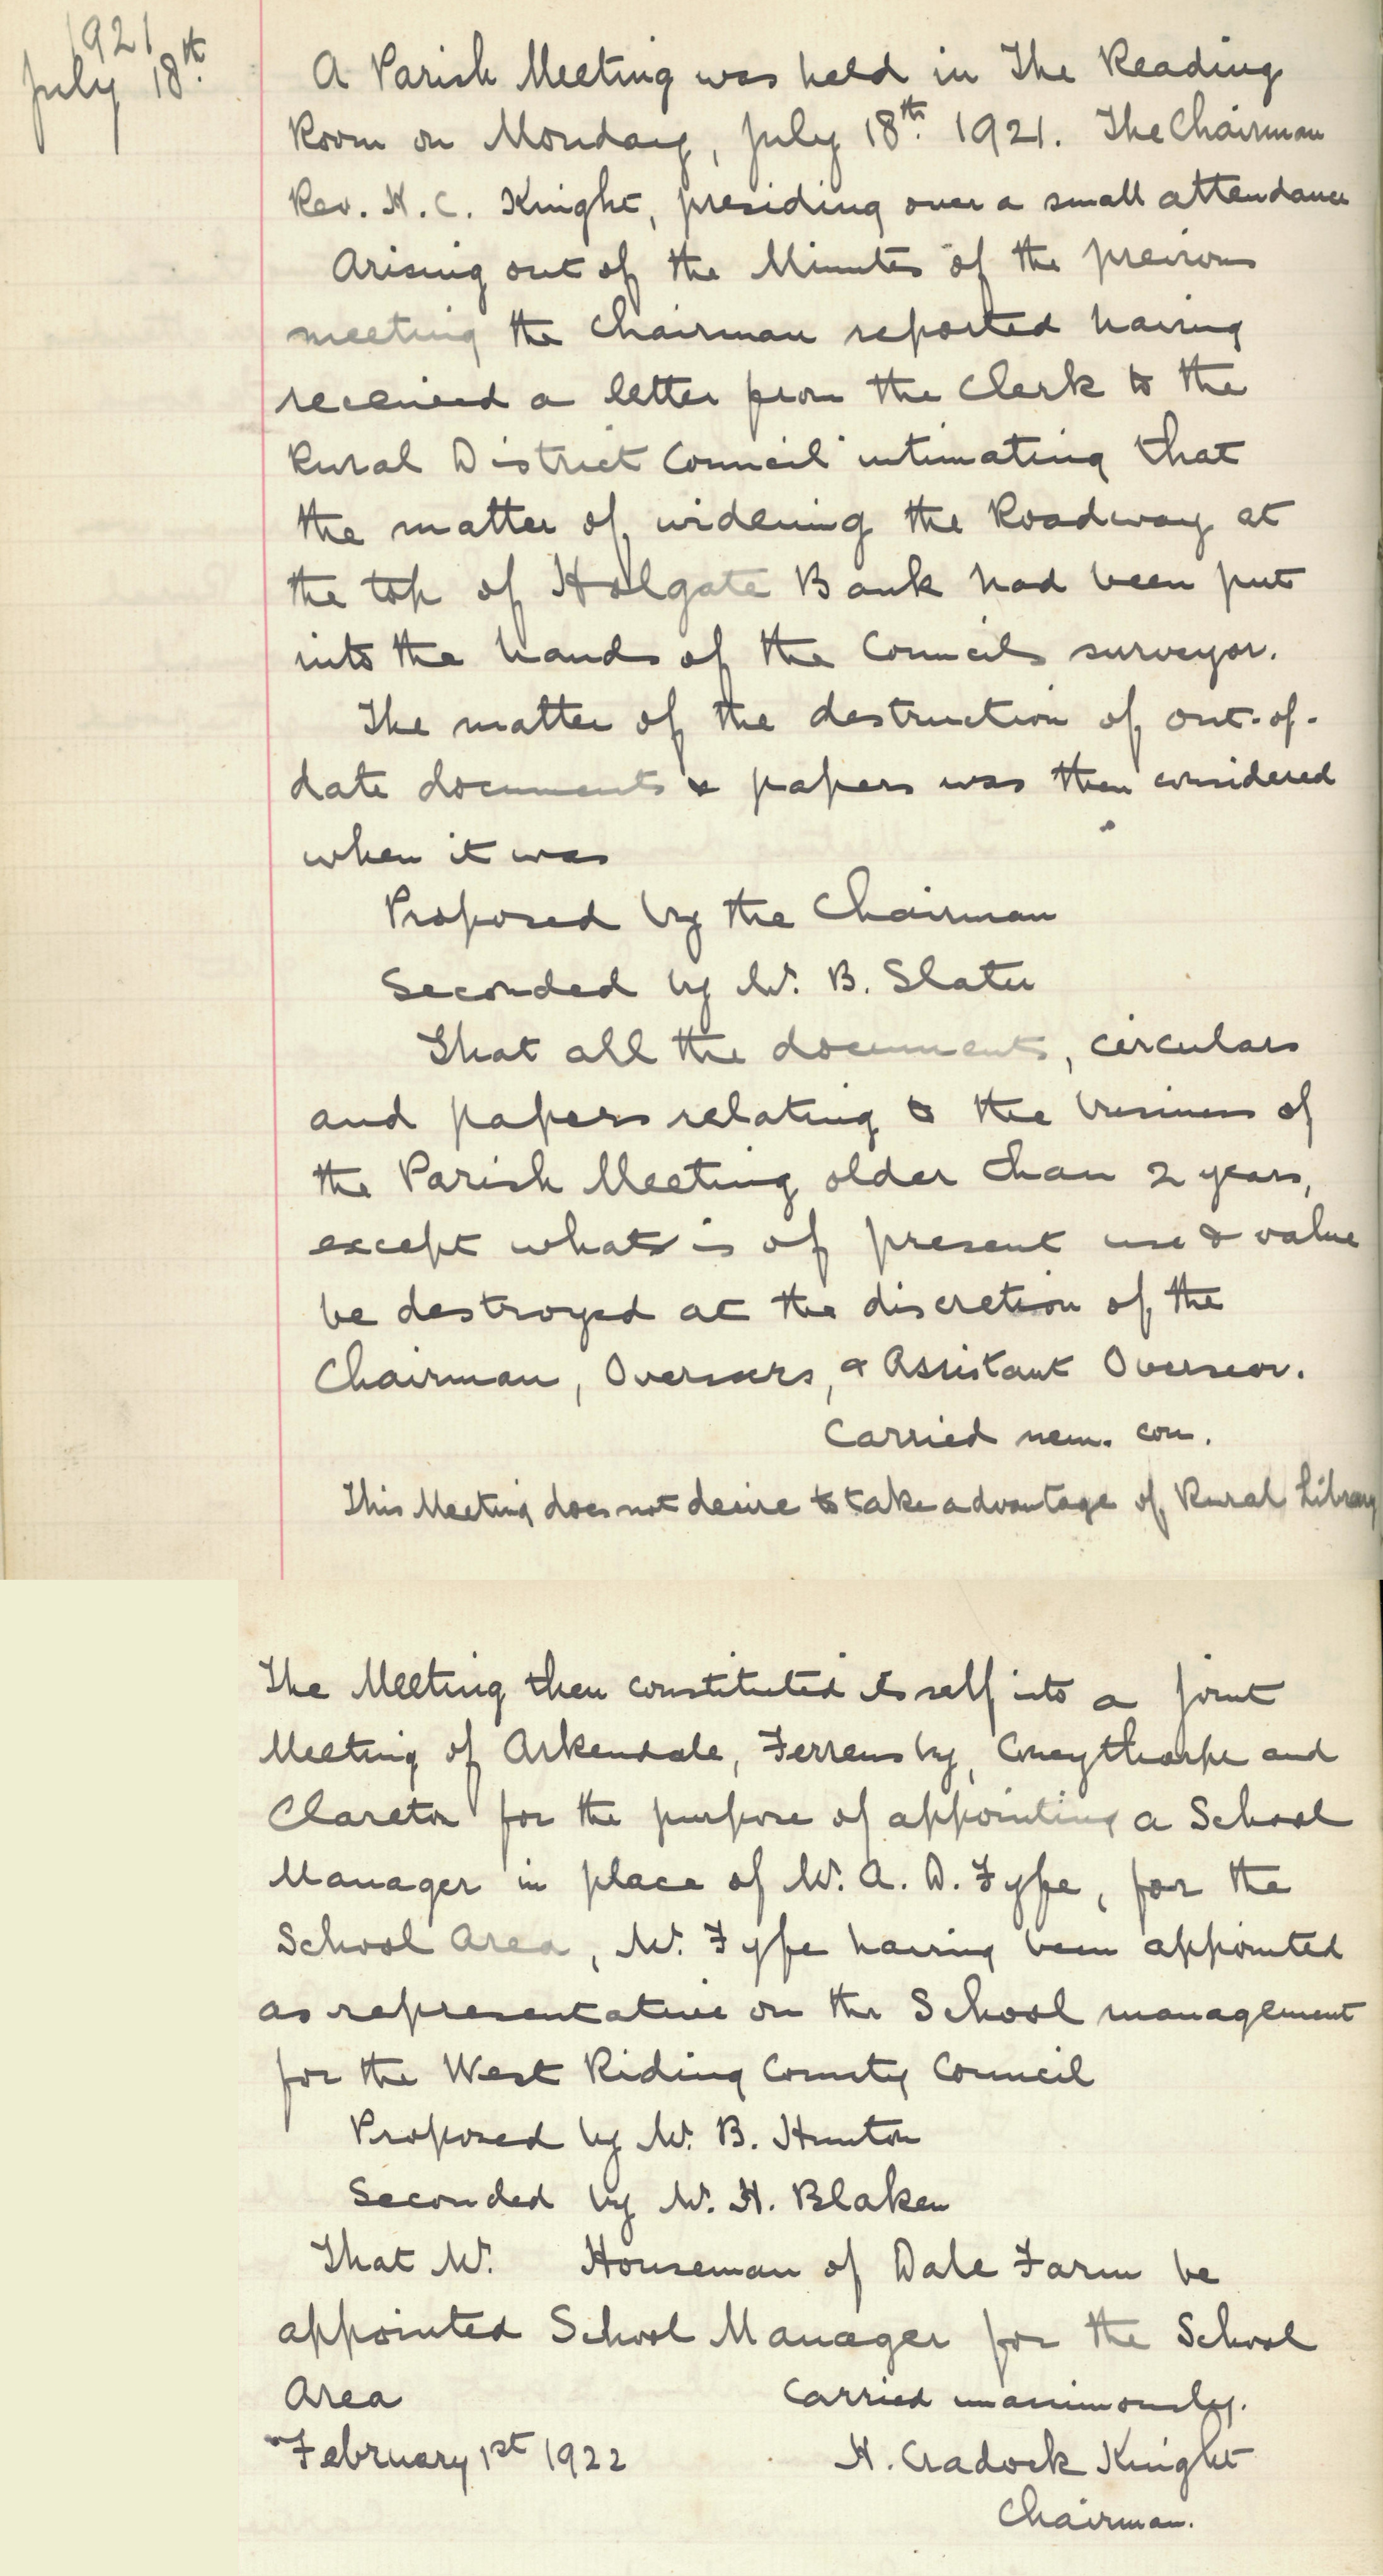 1921
July 18th.
A Parish Meeting was held in The Reading
Room on Monday, July 18th. 1921. The Chairman
Rev. H. C. Knight, presiding over a small attendance
Arising out of the Minutes of the previous
meeting the Chairman reported having
received a letter from the Clerk to the
Rural District Council intimating that
the matter of widening the Roadway at
the top of Holgate Bank had been put
into the hands of the Councils surveyor.
The matter of the destruction of out-of-
date documents & papers was then considered
when it was
Proposed by the Chairman
Seconded by Mr. B. Slater
That all the documents, circulars
and papers relating to the business of
the Parish Meeting older than 2 years,
except what is of present use & value
be destroyed at the discretion of the
Chairman, Overseers, & Assistant Overseer.
Carried nem. con.
This Meeting does not desire to take advantage of Rural Library
The Meeting then constituted itself into a joint
Meeting of Arkendale, Ferrensby, Coneythorpe and
Clareton for the purpose of appointing a School
Manager in place of Mr. A. D. Fyfe, for the
School Area, Mr. Fyfe having been appointed
as representative on the School management
for the West Riding County Council
Proposed by Mr. B. Hunton
Seconded by Mr. H. Blaken
That Mr. Houseman of Dale Farm be
appointed School Manager for the School
Area Carried unanimously.
February 1st 1922 H. Cradock Knight
Chairman.